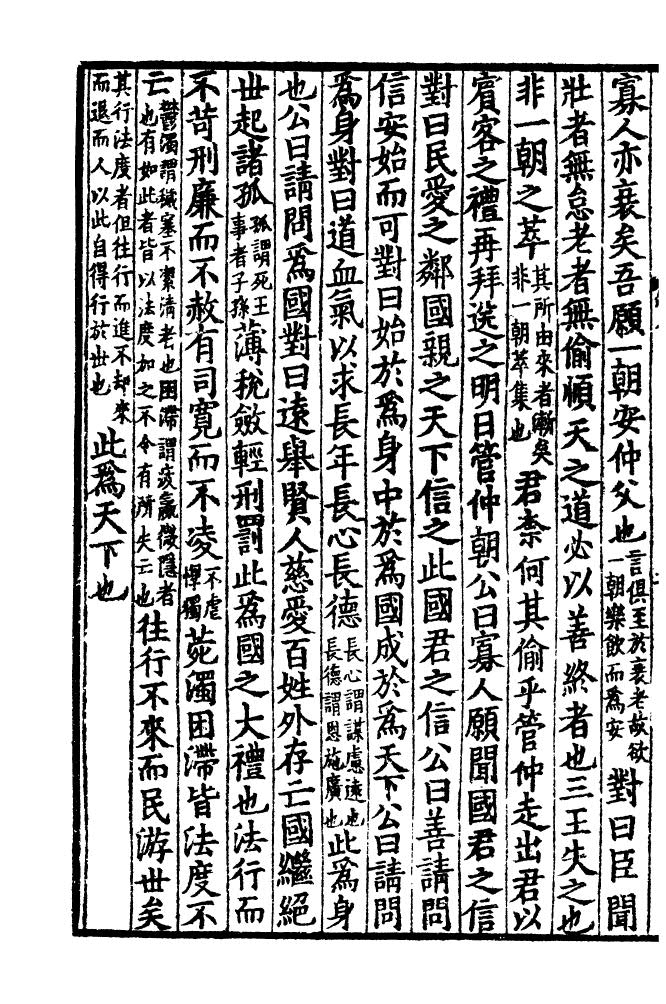 寡人亦衰矣吾願一朝安仲父也言俱至於衰老故欲一朝樂飲而為安對曰臣聞
壯者無怠老者無偷順天之道必以善終者也三王失之也
非一朝之萃其所由來者漸矣非一朝萃集也君柰何其偷乎管仲走出君以
賓客之禮再拜送之明日管仲朝公曰寡人願聞國君之信
對曰民愛之鄰國親之天下信之此國君之信公曰善請問
信安始而可對曰始於爲身中於爲國成於爲天下公曰請問
爲身對曰道血氣以求長年長心長德長心謂謀慮遠也長德謂恩施廣也此爲身
也公曰請問爲國對曰遠舉賢人慈愛百姓外存亡國繼絕
世起諸孤孤謂死王事者子孫薄稅斂輕刑罰此爲國之大禮也法行而
不苛刑廉而不赦有司寬而不凌不虐惸獨菀濁困滯皆法度不
亡鬱濁謂穢塞不潔清者也困滯謂疲羸微隱者也有如此者皆以法度加之不令有所失亡也往行不來而民游世矣
其行法度者但往行而進不却來而退而人以此自得行於世也此爲天下也